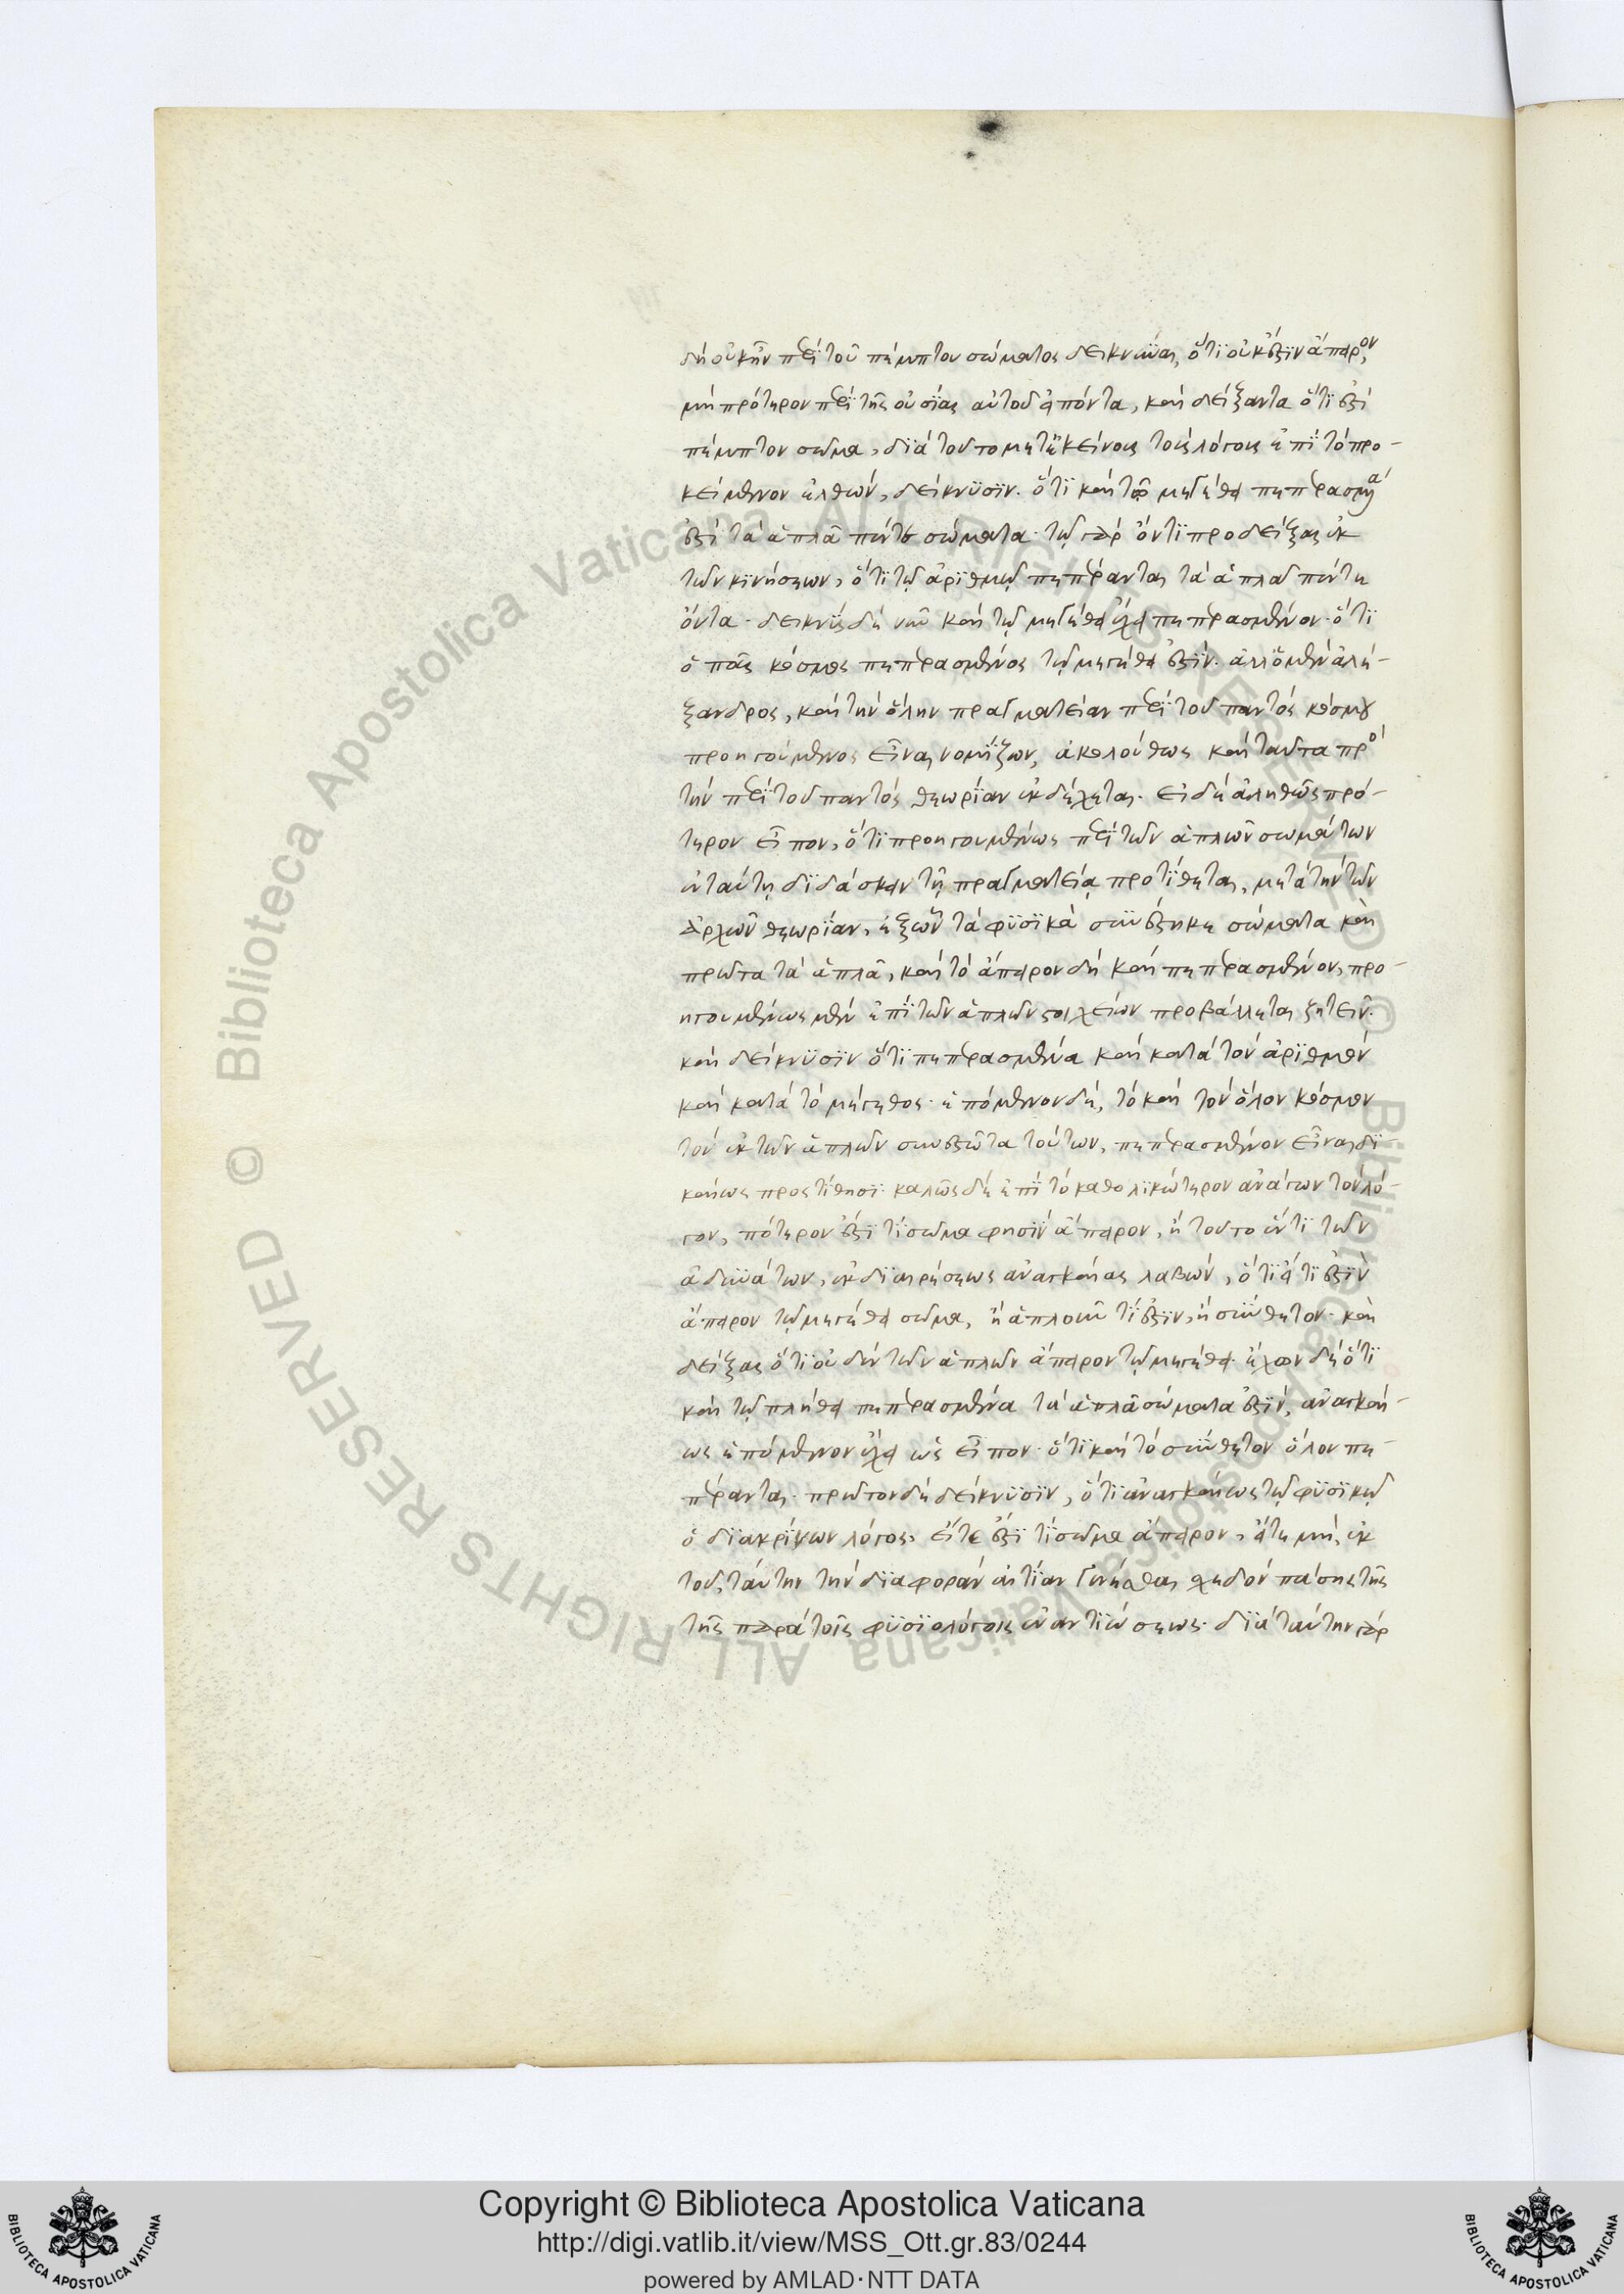 δὴ οὐκ ἦν περὶ τοῦ πέμπτου σώματος δεικνύναι, ὅτι οὐκ ἔστιν ἄπειρον,
μὴ πρότερον περὶ τῆς οὐσίας αὐτοῦ εἰπόντα, καὶ δείξαντα ὅτι ἐστὶ
πέμπτον σῶμα, διὰ τοῦτο μετ' ἐκείνους τοὺς λόγους ἐπὶ τὸ προ-
κείμενον ἐλθών, δείκνυσιν. ὅτι καὶ τῷ μεγέθει πεπερασμένα
ἐστὶ τὰ ἁπλᾶ πέντε σώματα. τῷ γὰρ ὄντι προδείξας ἐκ
τῶν κινήσεων, ὅτι τῷ ἀριθμῷ πεπέρανται τὰ ἁπλᾶ πέντε
ὄντα. δεικνὺς δὲ νῦν καὶ τῷ μεγέθει ἔχει πεπερασμένον. ὅτι
ὁ πᾶς κόσμος πεπερασμένος τῷ μεγέθει ἐστίν. ἀλλ' ὁ μὲν ἀλέ-
ξανδρος, καὶ τὴν ὅλην πραγματείαν περὶ τοῦ παντὸς κόσμου
προηγούμενος εἶναι νομίζων, ἀκολούθως καὶ ταῦτα πρὸ
τὴν περὶ τοῦ παντὸς θεωρίαν ἐκδέχεται. εἰ δὲ ἀληθῶς πρό-
τερον εἶπον, ὅτι προηγουμένως περὶ τῶν ἁπλῶν σωμάτων
ἐν ταύτῃ διδάσκειν τῇ πραγματείᾳ προτίθεται, μετὰ τὴν τῶν
ἀρχῶν θεωρίαν, ἐξ ὧν τὰ φυσικὰ συνέστηκε σώματα καὶ
πρῶτα τὰ ἁπλᾶ, καὶ τὸ ἄπειρον δὴ καὶ πεπερασμένον, προ-
ηγουμένως μὲν ἐπὶ τῶν ἁπλῶν στοιχείων προβάλλεται ζητεῖν.
καὶ δείκνυσιν ὅτι πεπερασμένα καὶ κατὰ τὸν ἀριθμὸν
καὶ κατὰ τὸ μέγεθος. ἑπόμενον δὲ, τὸ καὶ τὸν ὅλον κόσμον
τὸν ἐκ τῶν ἁπλῶν συνεστῶτα τούτων, πεπερασμένον εἶναι δι-
καίως προστίθησι. καλῶς δὲ ἐπὶ τὸ καθολικώτερον ἀνάγων τὸν λό-
γον, πότερον ἔστι τί σῶμα φησὶν ἄπειρον, ἢ τοῦτο ἕν τι τῶν
ἀδυνάτων, ἐκ διαιρέσεως ἀναγκαίας λαβών, ὅτι εἴ τι ἐστὶν
ἄπειρον τῷ μεγέθει σῶμα, ἢ ἁπλοῦν τί ἐστιν, ἢ σύνθετον. καὶ
δείξας ὅτι οὐδὲν τῶν ἁπλῶν ἄπειρον τῷ μεγέθει. ἔχων δὲ ὅτι
καὶ τῷ πλήθει πεπερασμένα τὰ ἁπλᾶ σώματα ἐστίν, ἀναγκαί-
ως ἑπόμενον ἔχει ὡς εἶπον. ὅτι καὶ τὸ σύνθετον ὅλον πε-
πέρανται. πρῶτον δὲ δείκνυσιν, ὅτι ἀναγκαίως τῷ φυσικῷ
ὁ διακρίνων λόγος, εἴτε ἔστι τί σῶμα ἄπειρον, εἴτε μή, ἐκ
τοῦ, ταύτην τὴν διαφορὰν αἰτίαν γενέσθαι σχεδὸν πάσης τῆς
τῆς παρὰ τοῖς φυσιολόγοις ἐναντιώσεως. διὰ ταύτην γὰρ
Copyright © Biblioteca Apostolica Vaticana
http://digi.vatlib.it/view/MSS_Ott.gr.83/0244
powered by AMLAD·NTT DATA